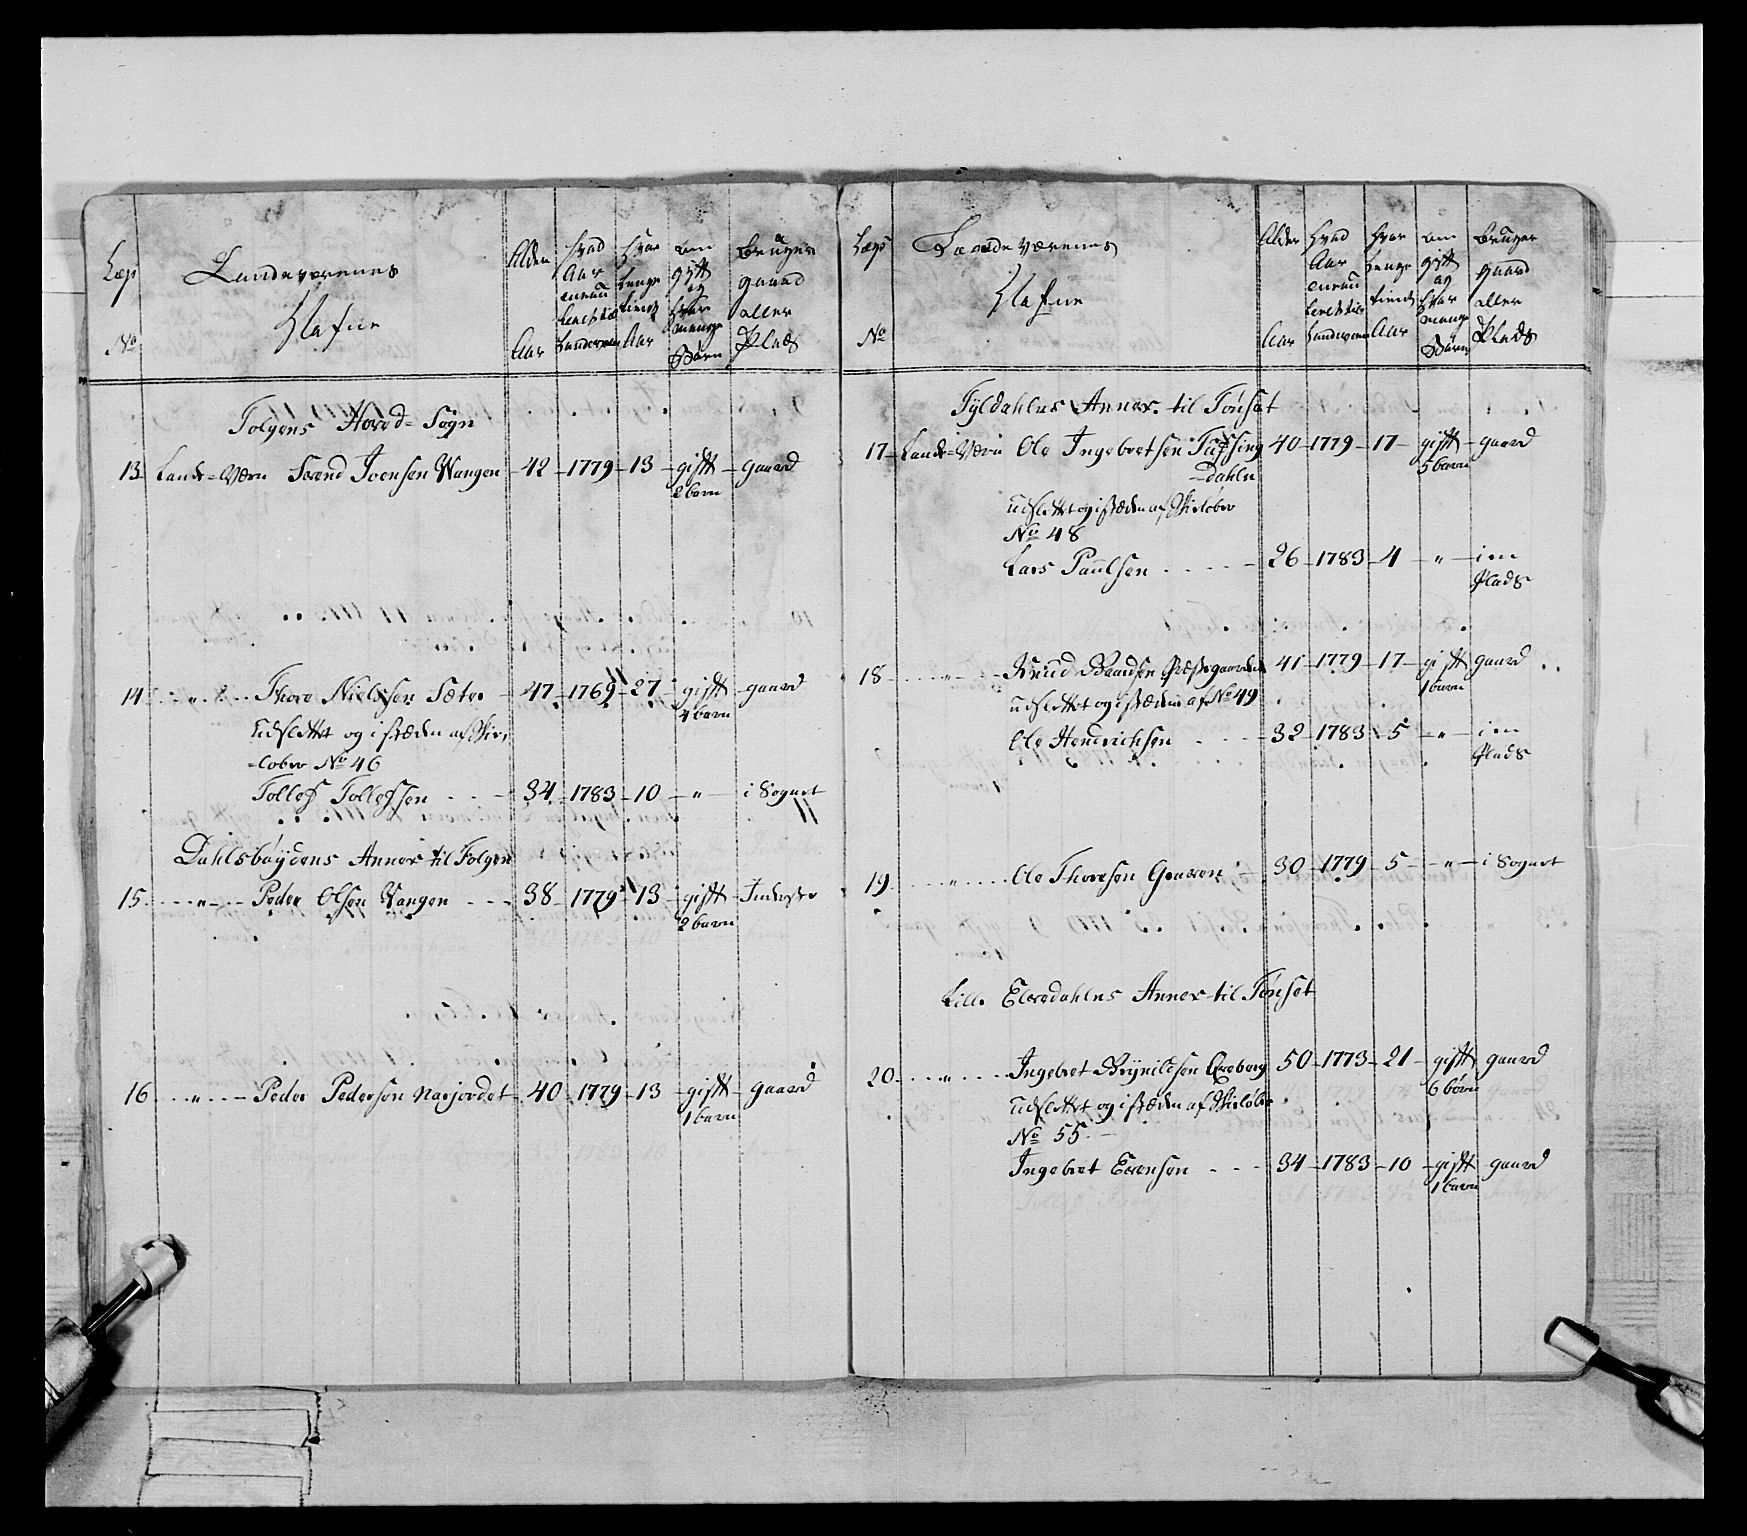 Læg
No
Landeværenes
Nafne
Alder
Aar
Hvad
Aar
Landeværn
Hvor
Længe
tient
Aar
om
gift
og
Hvor
mange
Børn
bruger
gaard
eller
Plads
Tolgens Hoved-Sogn
13 Lande-Værn Svend Joensen Wangen 42 1779 13 gift gaard
2 børn
14 " Thore Nielsen Sæter 47 1769 27 gift gaard
4 børn
udslettet og i stæden af Skie
-løber No 46
Tollef Tollefsen 34 1783 10 " i Sognet
Dahlsbøydens Annex til Tolgen
15 " Peder Olsen Vangen 38 1779 13 gift Inderster
2 børn
16 " Peder Pedersen Narjordet 40 1779 13 gift gaard
1 barn
Læg
No
Landeværenes
Nafne
Alder
Aar
Hvad
Aar
Landeværn
Hvor
Længe
tient
Aar
om
gift
og
Hvor
mange
Børn
bruger
gaard
eller
Plads
Tyldahlens Annex til Tønset
17 Lande-Værn Ole Ingebretsen 40 1779 17 gift gaard
-dahlen 5 børn
udslettet og i stæden af Skieløber
No 48
Lars Paulsen 26 1783 4 " i en
Plads
18 " Knud 41 1779 17 gift gaard
1 barn
udslettet og i stæden af No 49
Ole Hendrichsen 32 1783 5 " i en
Plads
19 " Ole Thoresen 30 1779 5 " i Sognet
Lille Elvedahlens Annex til Tønset
20 " Ingebret Brynildsen 50 1773 21 gift gaard
6 børn
udslettet og i stæden af Skieløber
No 55
Ingebret Evensen 34 1783 10 gift gaard
1 barn